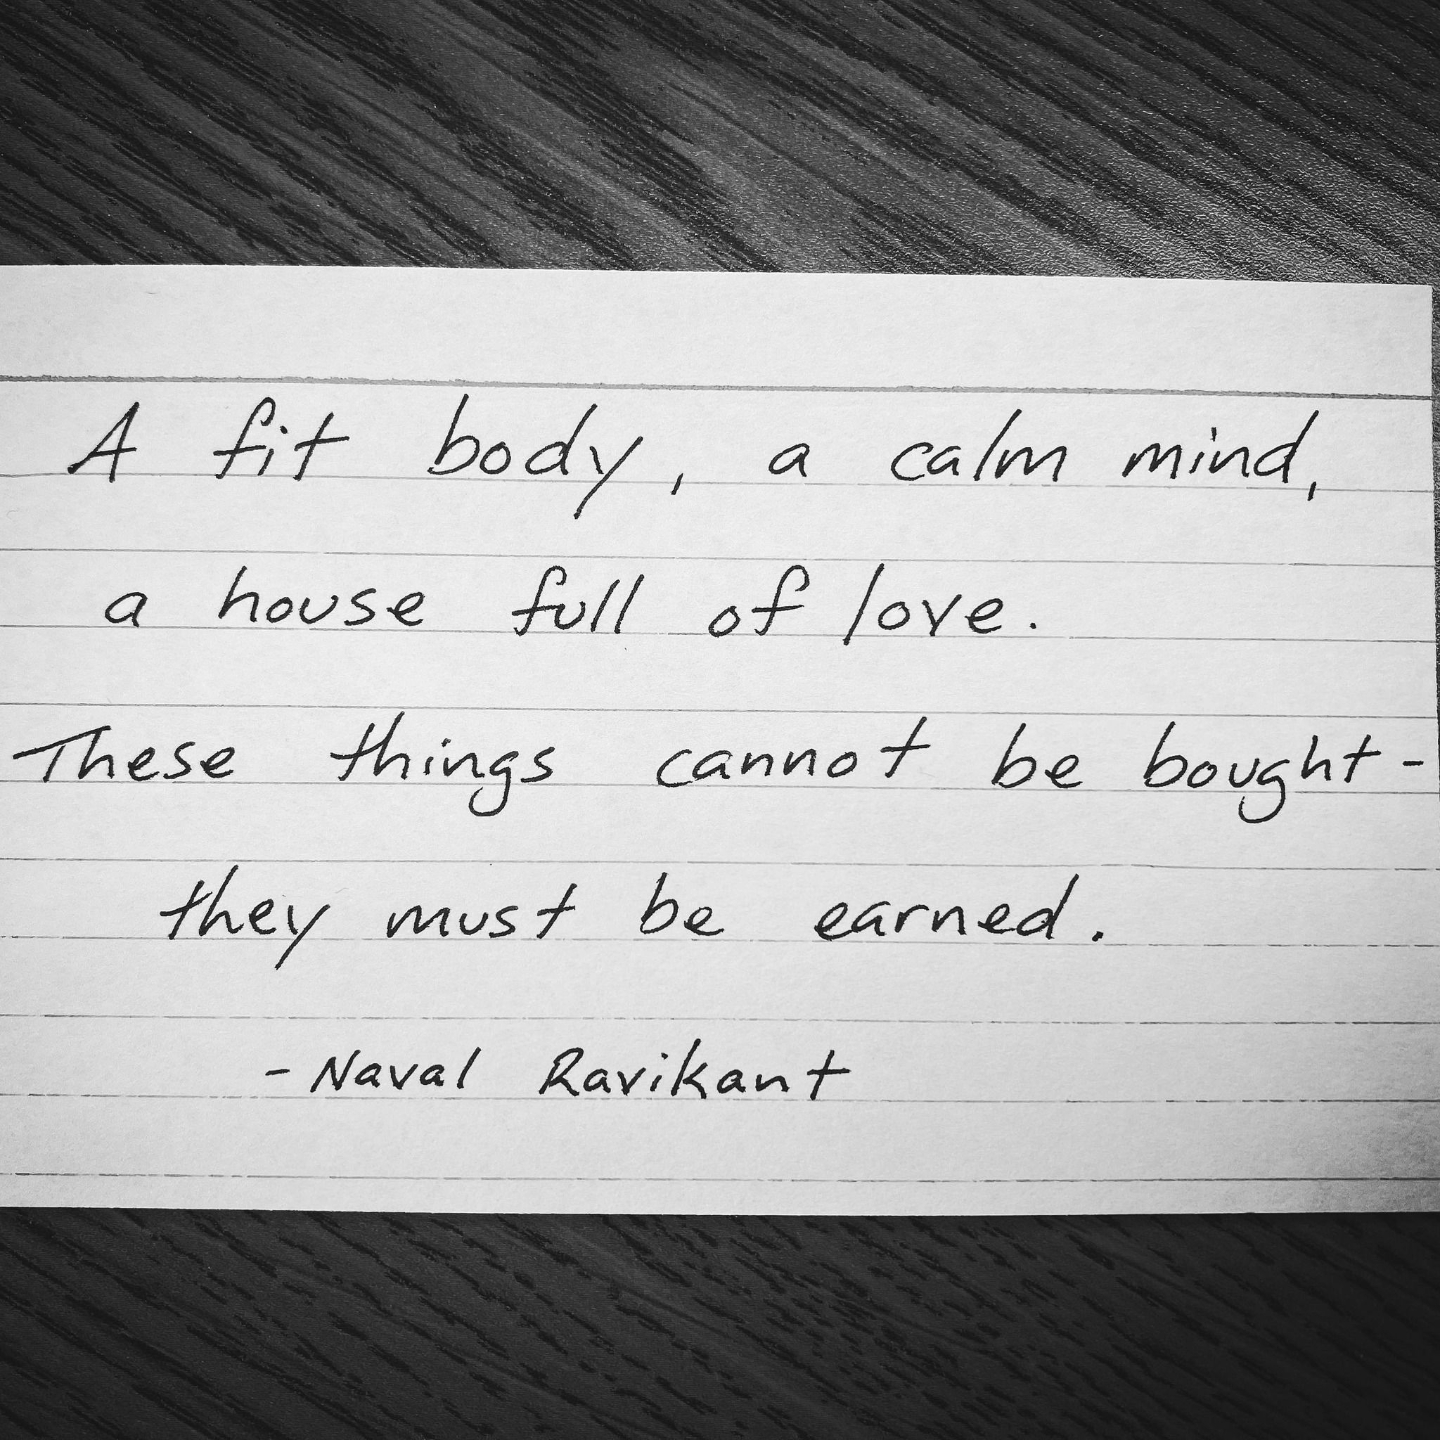 A fit body, a calm mind,
a house full of love.
These things cannot be bought -
they must be earned.
- Naval Ravikant